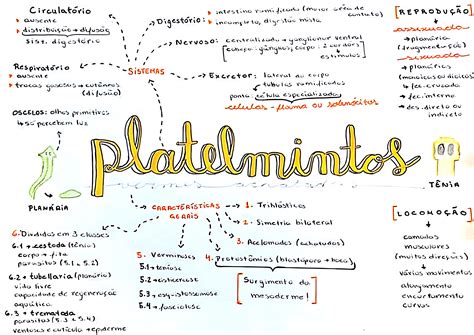 Circulatório
• ausente
• distribuição → difusão/
sist. digestório
Respiratório
• ausente
• trocas gasosas → cutânea
(difusão)
OCELOS: olhos primitivos
↳ só percebem luz
PLANÁRIA
SISTEMAS
Digestório:
• intestino ramificado (maior área de
contato)
• incompleto, digestão mista
Nervoso:
centralizado → ganglionar ventral
[cabeça: gânglios; corpo: 2 cordões]
estímulos
Excretor:
lateral ao corpo
↳ túbulos ramificados
ponta: célula especializada
células-flama ou solenócitos
[REPRODUÇÃO]
assexuada
→ planária
(fragmentação)
sexuada
→ planárias
(monoicos ou dioicos)
↳ fec. cruzada
↳ fec. interna
↳ des. direto ou
indireto
platelmintos
vermes achatados
TÊNIA
CARACTERÍSTICAS
GERAIS
1. Triblásticos
2. Simetria bilateral
3. Acelomados (achatados)
4. Protostômios (blastóporo → boca)
[Surgimento do
mesoderme!]
5. Verminoses
5.1 → teníase
5.2 → cisticercose
5.3 → esquistossomose
5.4 → fasciolose
6. Divididos em 3 classes
6.1 → cestoda (tênia)
corpo → fita
parasitas (5.1 e 5.2)
6.2 → tubellaria (planária)
vida livre
capacidade de regeneração
aquática.
6.3 → trematoda
parasitas (5.3 e 5.4)
ventosas e cutícula → epiderme
[LOCOMOÇÃO]
camadas
musculares
(muitas direções)
↳
vários movimentos
alongamento
encurtamento
curvas